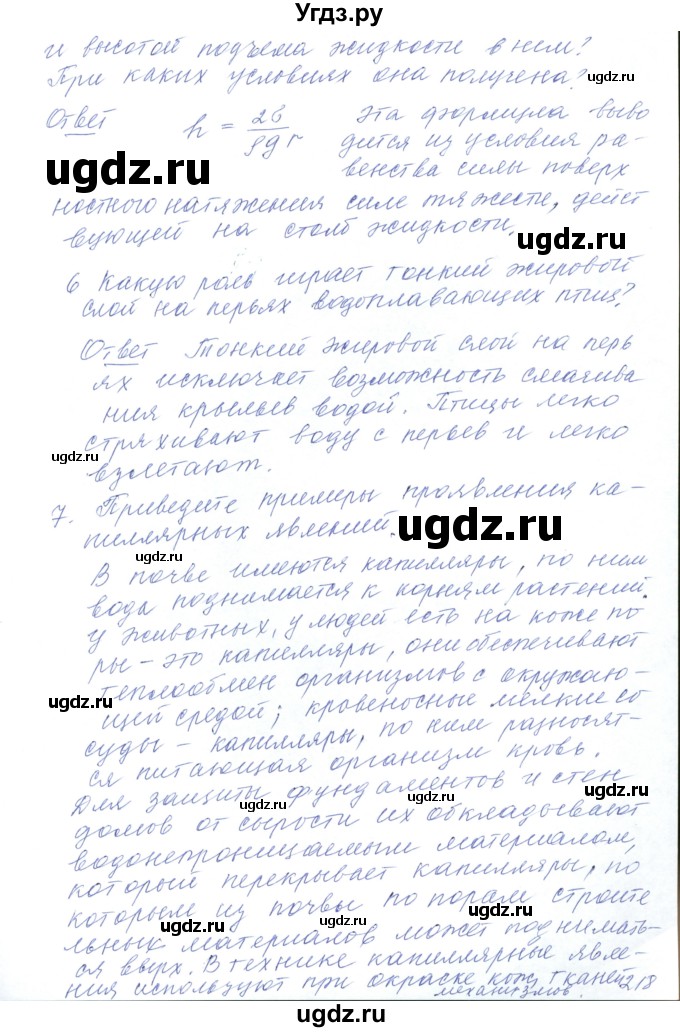 Угдз.ру
и высотой подъема жидкости в ним?
При каких условиях она получена?
ugdz.ru
Ответ h = 2б/ρgr эта формула выво
дится из условия ра-
венства силы поверх
ugdz.ru
ностного натяжения силе тяжести, дейст
вующей на столб жидкости.
ugdz.ru
6 Какую роль играет тонкий жировой
слой на перьях водоплавающих птиц?
ugdz.ru
Ответ Тонкий жировой слой на перь
ях исключает возможность смачива
ния крыльев водой. Птицы легко
стряхивают воду с перьев и легко
ugdz.ru
взлетают.
7. Приведите примеры проявления ка-
пиллярных явлений.
ugdz.ru
ugdz.ru
В почве имеются капилляры, по ним
вода поднимается к корням растений.
ugdz.ru
У животных, у людей есть на коже по
ры – это капилляры, они обеспечивают
теплообмен организмов с окружаю-
ugdz.ru
щей средой; кровеносные мелкие со
суды – капилляры, по ним разносят-
ся питающая организм кровь.
ugdz.ru
Для защиты фундаментов и стен
домов от сырости их обкладывают
водонепроницаемым материалом,
который перекрывает капилляры, по
которым из почвы по порам строите
ugdz.ru
льных материалов может поднимать-
ся вверх. В технике капиллярные явле-
ния используют при окраске кож, тканей
механизмов.
218
ugdz.ru